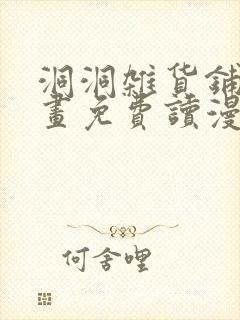 洞洞雜货鋪
畫免費讀漫
何舍哩